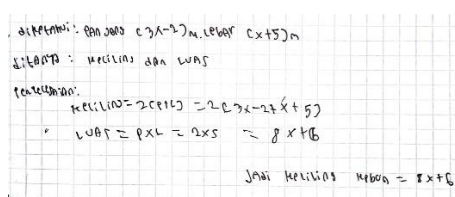 diketahui : panjang (3x-2)m. lebar (x+5)m
ditanya : keliling dan luas
penyelesaian:
keliling = 2(p+l) = 2(3x-2+x+5)
luas = pxl = 2xs = 8x+6
Jadi keliling kebun = 8x+6